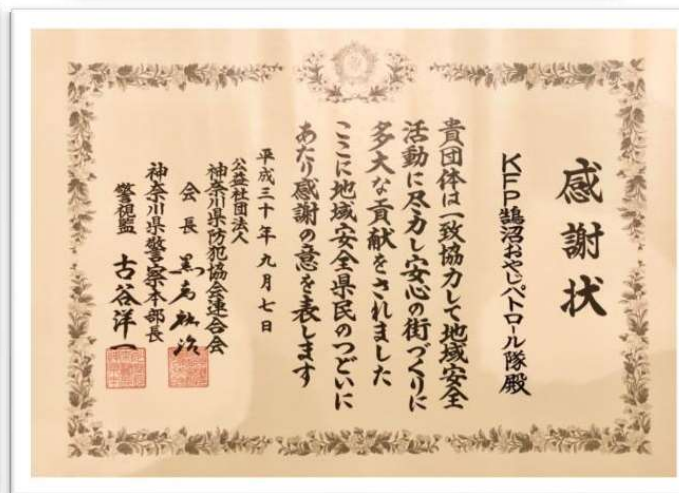 感謝状
KFP鵠沼おやじパトロール隊殿
貴団体は一致協力して地域安全
活動に尽力し安心の街づくりに
多大な貢献をされました
ここに地域安全県民のつどいに
あたり感謝の意を表します
平成三十年九月七日
公益社団法人
神奈川県防犯協会連合会
会長
神奈川県警察本部長
警視監 古谷洋一